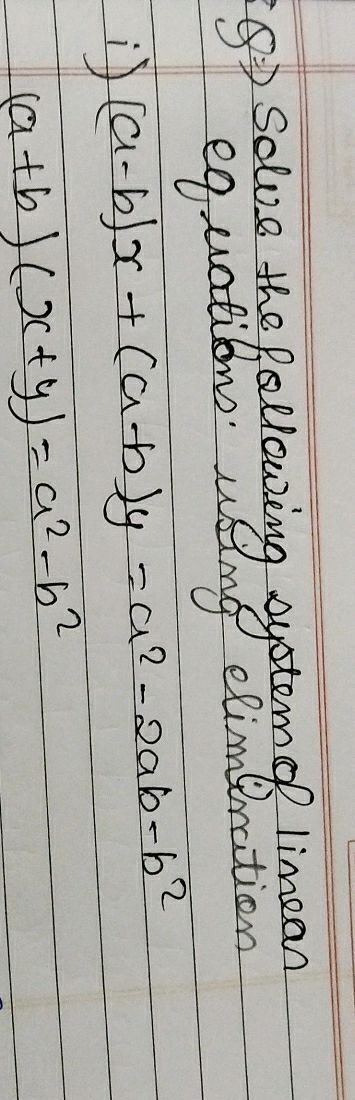 Q:) Solve the following system of linear
equations using elimination
i) (a-b)x + (a-b)y = a² - 2ab - b²
(a+b) (x+y) = a² - b²